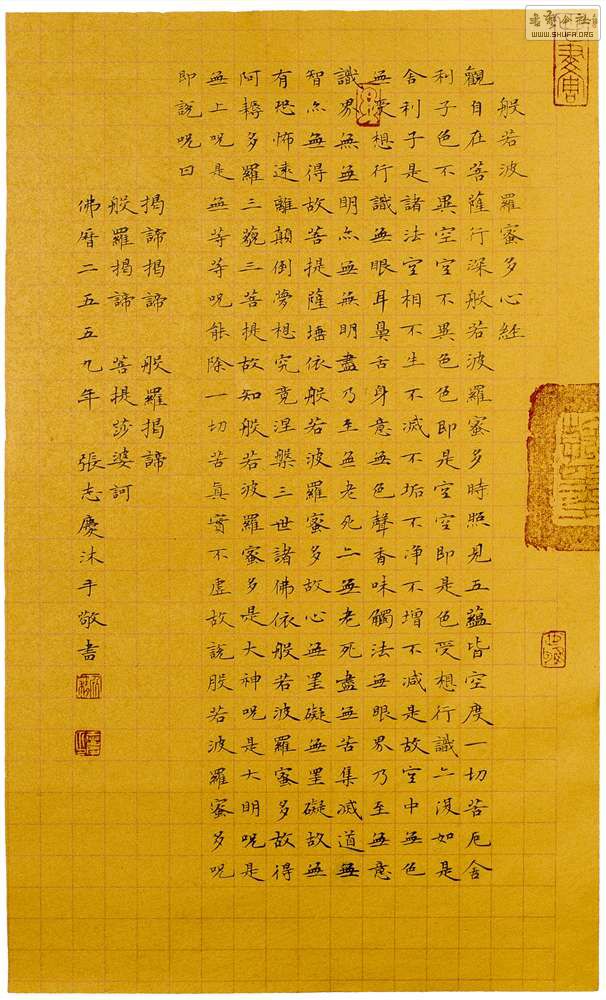 般若波羅蜜多心経
觀自在菩薩行深般若波羅蜜多時照見五蘊皆空度一切苦厄舍
利子色不異空空不異色色即是空空即是色受想行識亦復如是
舍利子是諸法空相不生不滅不垢不净不增不減是故空中無色
無受想行識無眼耳鼻舌身意無色聲香味觸法無眼界乃至無意
識界無無明亦無無明盡乃至無老死亦無老死盡無苦集滅道無
智亦無得故菩提薩埵依般若波羅蜜多故心無罣礙無罣礙故無
有恐怖遠離顛倒夢想究竟涅槃三世諸佛依般若波羅蜜多故得
阿耨多羅三藐三菩提故知般若波羅蜜多是大神呪是大明呪是
無上呪是無等等呪能除一切苦真實不虛故說般若波羅蜜多呪
即說呪曰
揭諦揭諦 般羅揭諦
般羅揭諦 菩提莎婆訶
佛曆二五五九年 張志慶沐手敬書
WWW.SHUFA.ORG